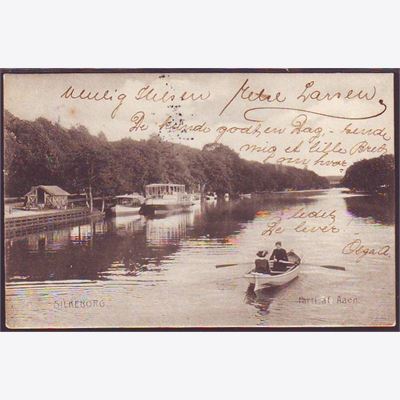 Venlig Hilsen Petre Larsen.
De kunde godt en Dag, sende
mig et lille Brev
om hvor
Stedet
De lever
Olga A
SILKEBORG.
Parti af Aaen.